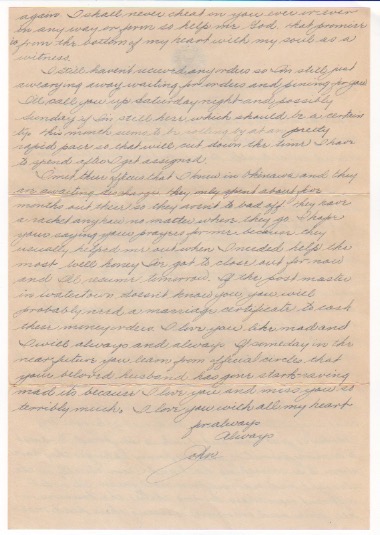 again. I shall never cheat on you ever or even
in any way or form so help me God. that promise
is from the bottom of my heart with my soul as a
witness.
I still havent received any orders so Im still just
awearying away waiting for orders and pining for you
I'll call you up Saturday night and possibly
Sunday if Im still here which should be a certain
ty. this month seems to be rolling by at a pretty
rapid pace so that will cut down the time I have
to spend after I get assigned.
I met three fellows that I knew in Okinawa and they
are awaiting discharge they only spent about five
months out there so they weren't to bad off they have
a racket anyhow no matter where they go. I hope
your saying your prayers for me because they
usually helped me out when I needed help the
most. Well honey Im got to close out for now
and I'll resume tomorrow. If the post master
in watertown doesn't know you, you will
probably need a marriage certificate to cash
these money orders. I love you like mad and
I will always and always. If someday in the
near future you learn from official circles that
your beloved husband has gone stark-raving
mad its because I love you and miss you so
terribly much. I love you with all my heart
for always
Always
John